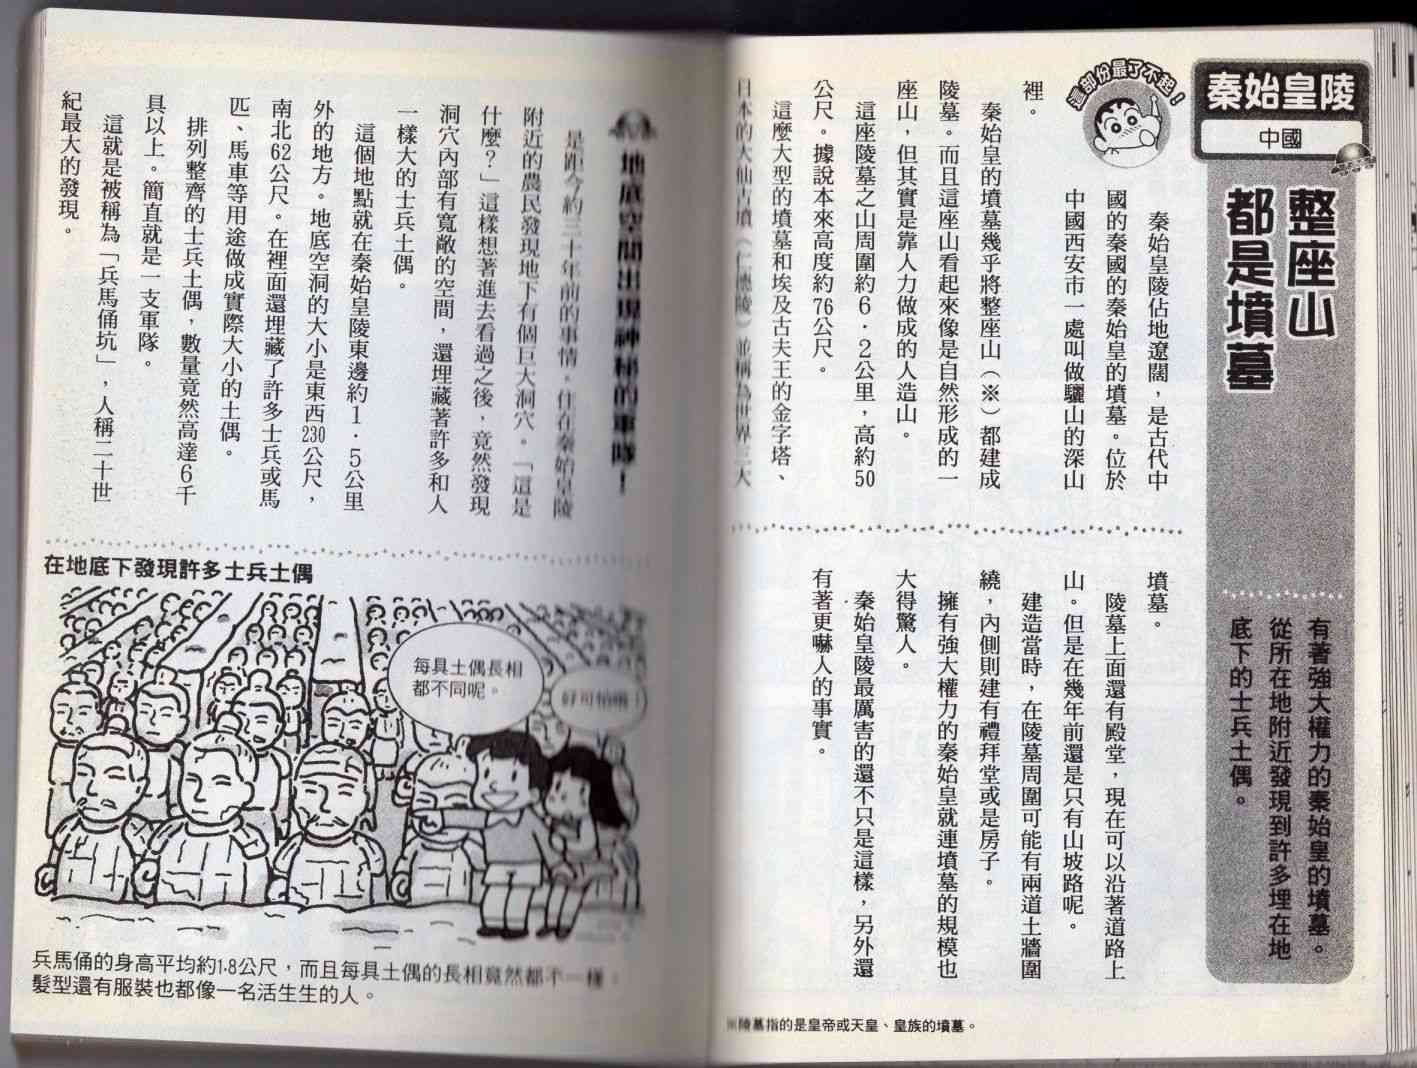 秦始皇陵
中國
整座山
都是墳墓
有著強大權力的秦始皇的墳墓。
從所在地附近發現到許多埋在地
底下的士兵土偶。
這部份最了不起！
秦始皇陵佔地遼闊，是古代中
國的秦國的秦始皇的墳墓。位於
中國西安市一處叫做驪山的深山
裡。
秦始皇的墳墓幾乎將整座山（※）都建成
陵墓。而且這座山看起來像是自然形成的一
座山，但其實是靠人力做成的人造山。
這座陵墓之山周圍約6．2公里，高約50
公尺。據說本來高度約76公尺。
這麼大型的墳墓和埃及古夫王的金字塔、
日本的大仙古墳（仁德陵）並稱為世界三大
墳墓。
陵墓上面還有殿堂，現在可以沿著道路上
山。但是在幾年前還是只有山坡路呢。
建造當時，在陵墓周圍可能有兩道土牆圍
繞，內側則建有禮拜堂或是房子。
擁有強大權力的秦始皇就連墳墓的規模也
大得驚人。
秦始皇陵最厲害的還不只是這樣，另外還
有著更嚇人的事實。
※陵墓指的是皇帝或天皇、皇族的墳墓。
地底空間出現神秘的軍隊！
是距今約三十年前的事情。住在秦始皇陵
附近的農民發現地下有個巨大洞穴。「這是
什麼？」這樣想著進去看過之後，竟然發現
洞穴內部有寬敞的空間，還埋藏著許多和人
一樣大的士兵土偶。
這個地點就在秦始皇陵東邊約1．5公里
外的地方。地底空洞的大小是東西230公尺，
南北62公尺。在裡面還埋藏了許多士兵或馬
匹、馬車等用途做成實際大小的土偶。
排列整齊的士兵土偶，數量竟然高達6千
具以上。簡直就是一支軍隊。
這就是被稱為「兵馬俑坑」，人稱二十世
紀最大的發現。
在地底下發現許多士兵土偶
好可怕哦！
每具土偶長相
都不同呢。
兵馬俑的身高平均約1.8公尺，而且每具土偶的長相竟然都不一樣。
髮型還有服裝也都像一名活生生的人。